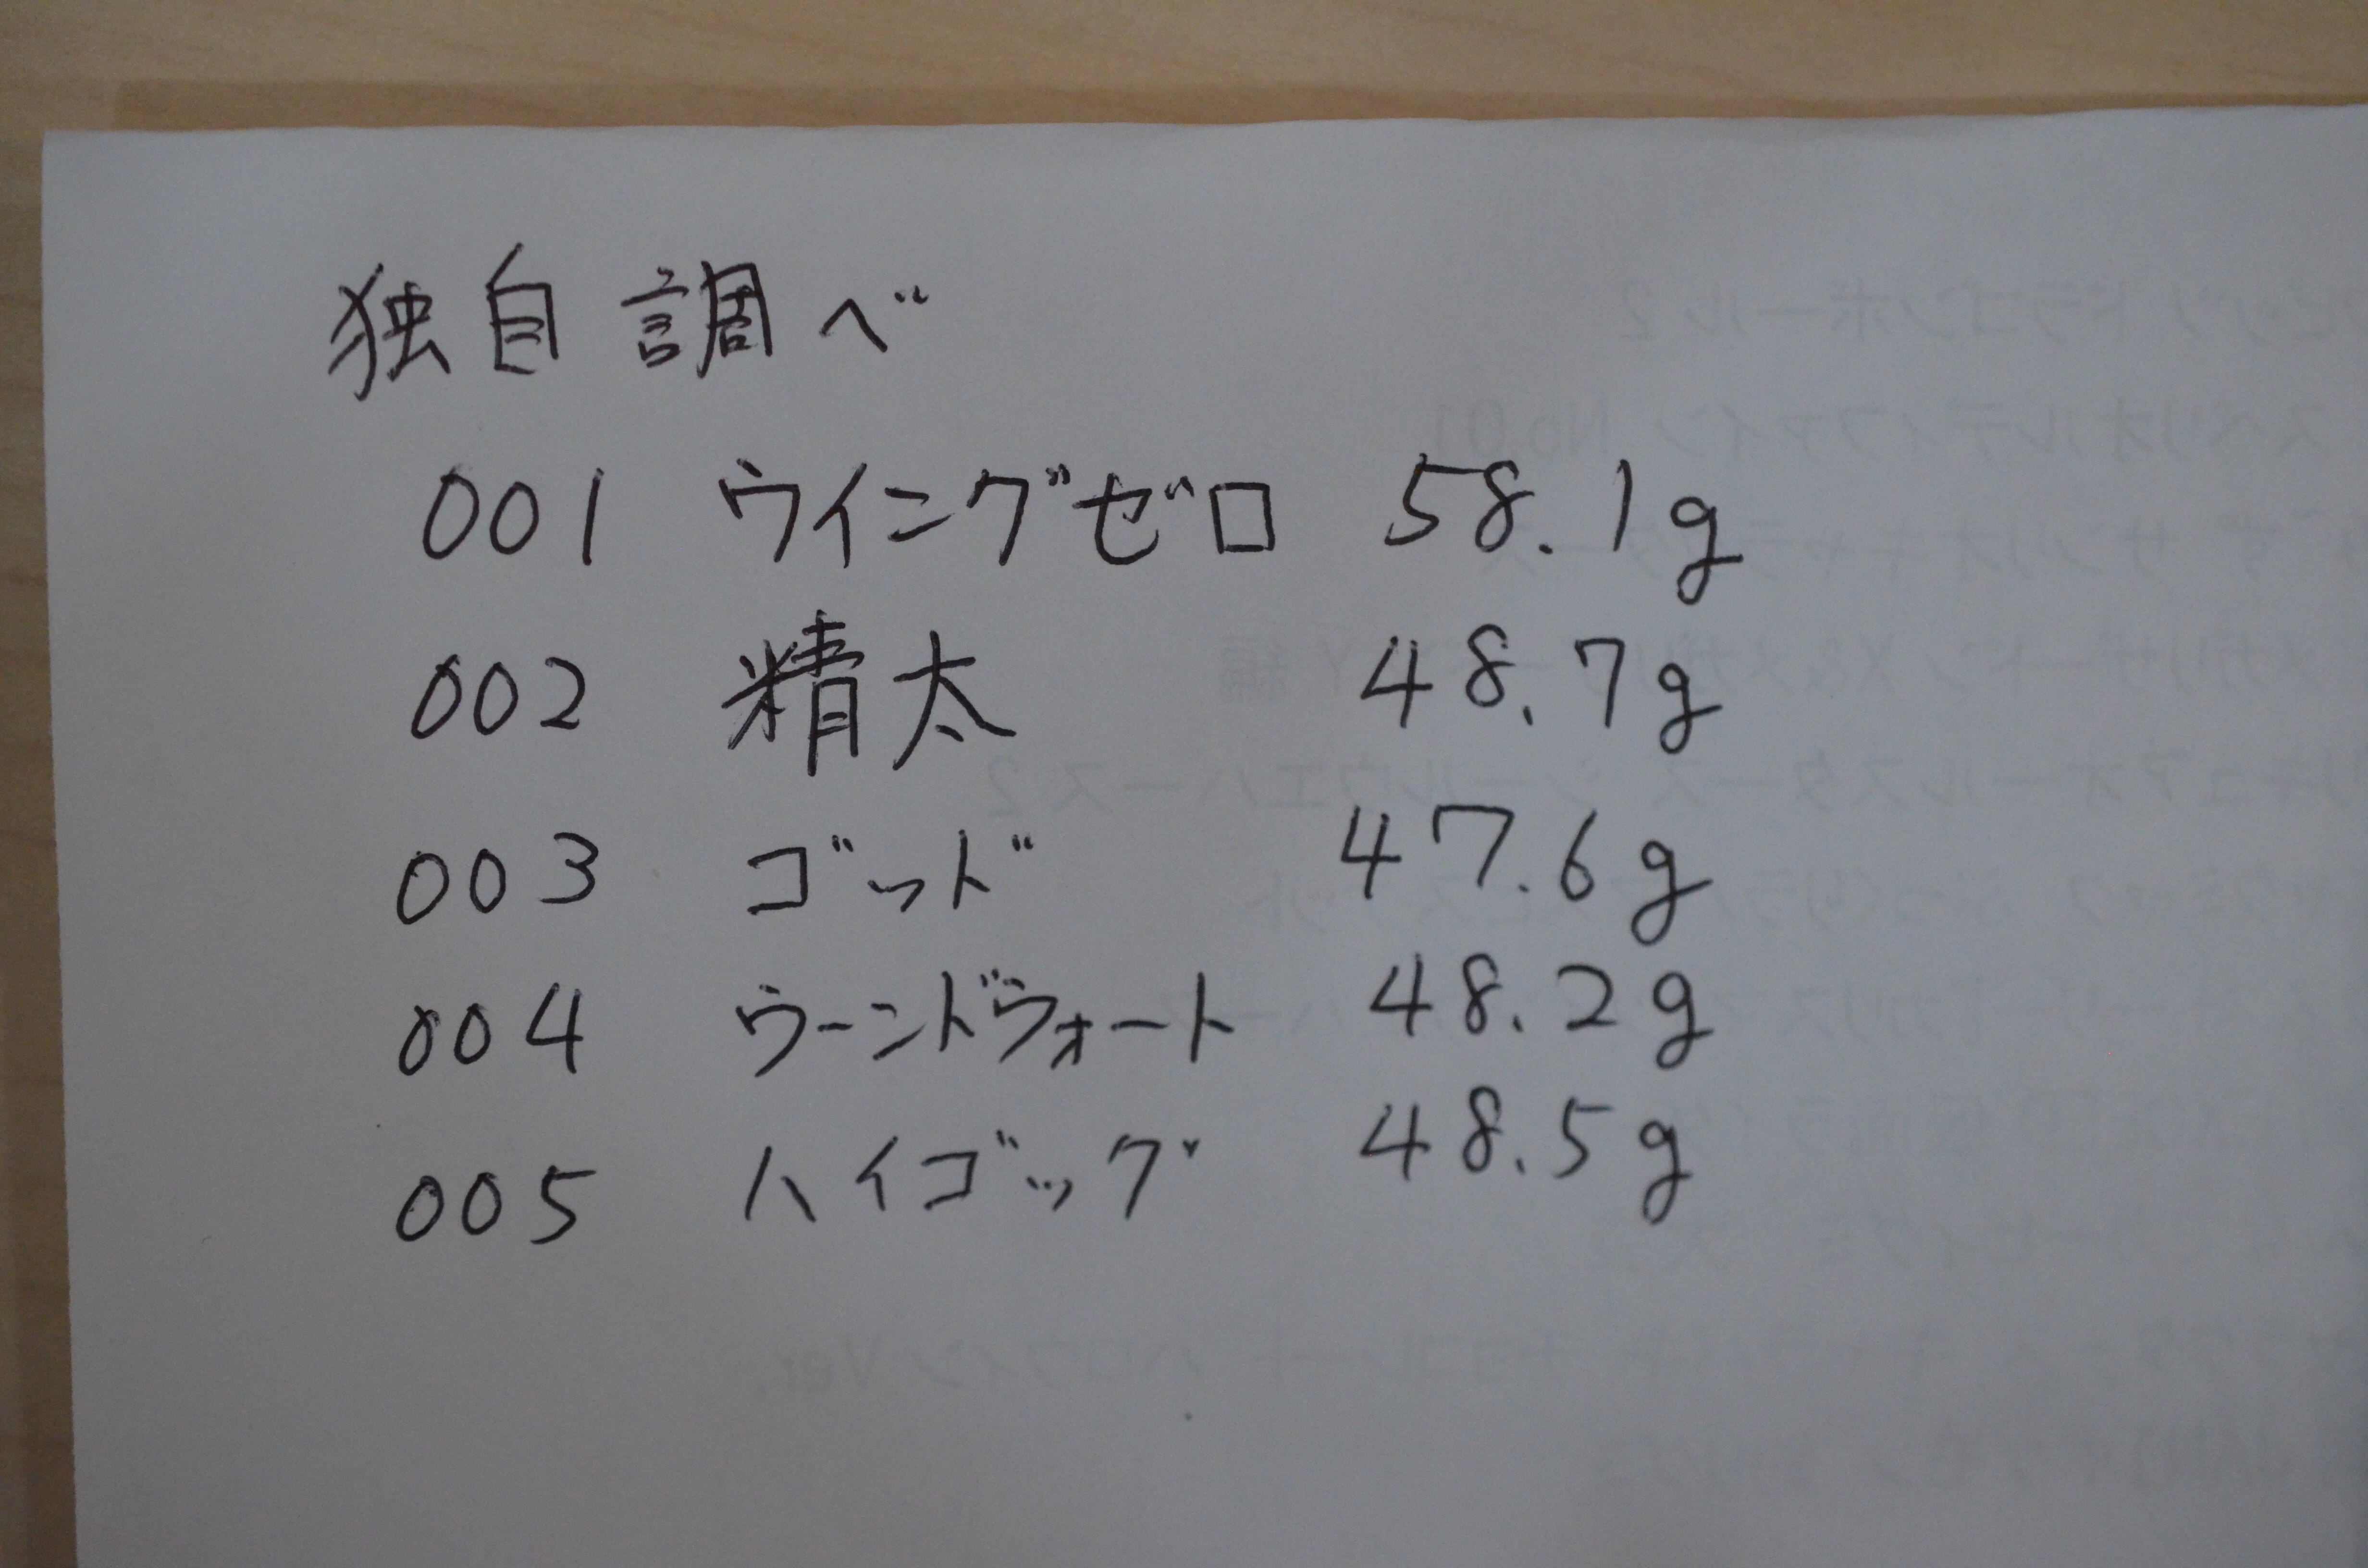 独自調べ
001 ウイングゼロ 58.1g
002 精太 48.7g
003 ゴッド 47.6g
004 ウーンドウォート 48.2g
005 ハイゴッグ 48.5g